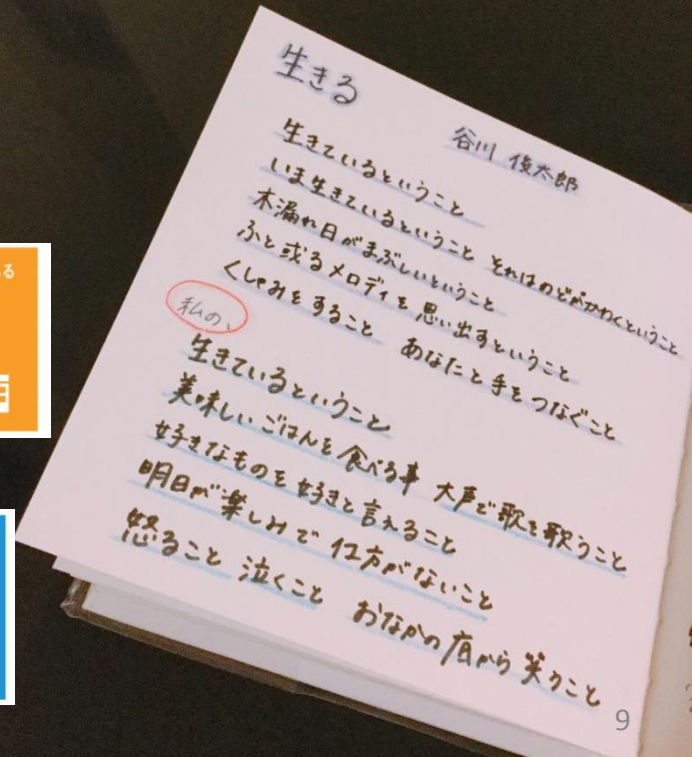 生きる
谷川 俊太郎
生きているということ
いま生きているということ それはのどがかわくということ
木漏れ日がまぶしいということ
ふと或るメロディを思い出すということ
くしゃみをすること あなたと手をつなぐこと
私の、
生きているということ
美味しいごはんを食べる事 大声で歌を歌うこと
好きなものを好きと言えること
明日が楽しみで仕方がないこと
怒ること 泣くこと おなかの底から笑うこと
る
9